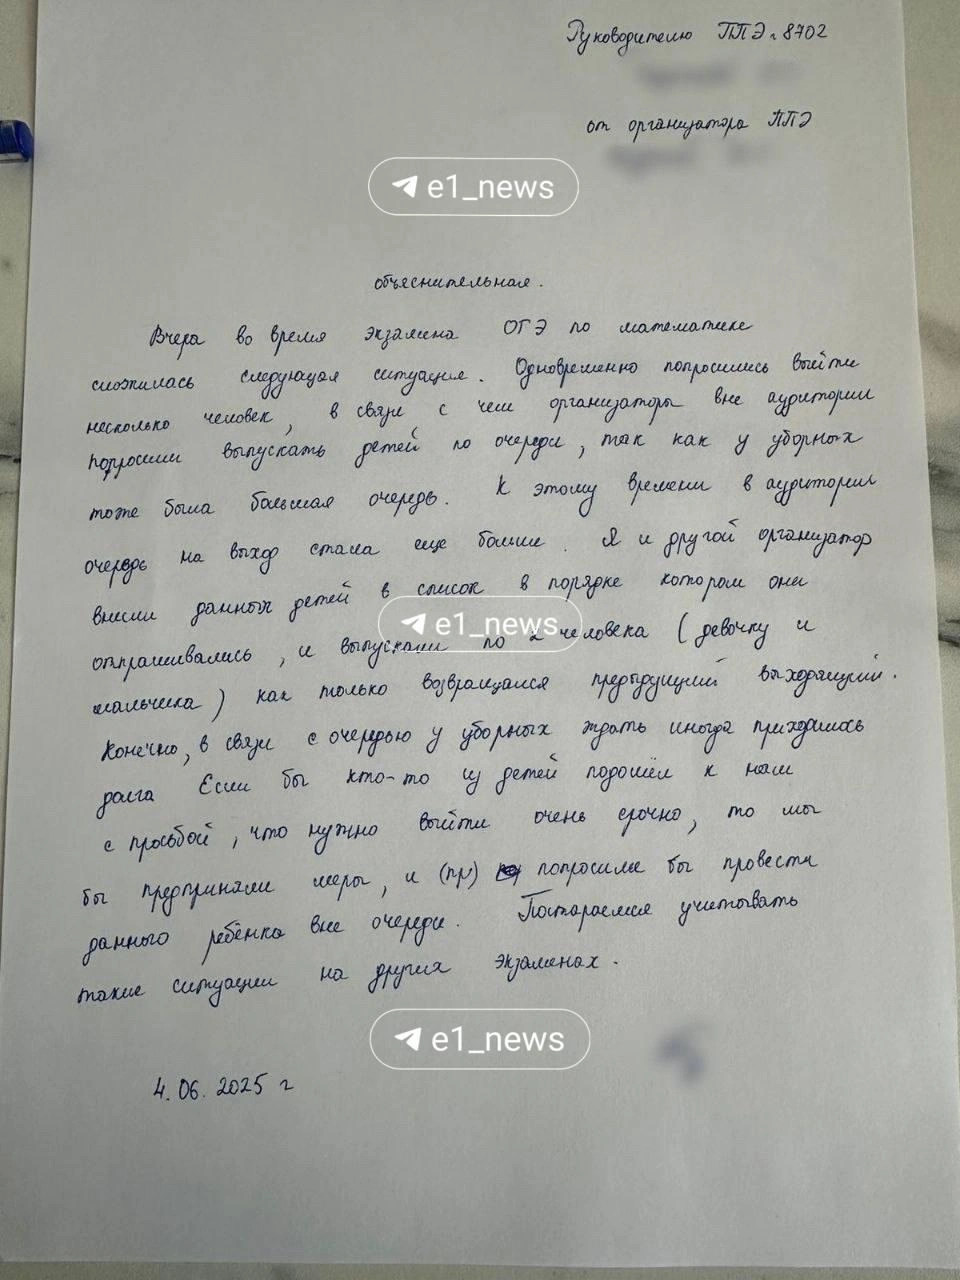 Руководителю ППЭ 8702
от организатора ППЭ
e1_news
объяснительная.
Вчера во время экзамена ОГЭ по математике
сложилась следующая ситуация. Одновременно попросились выйти
несколько человек, в связи с чем организаторы вне аудитории
попросили выпускать детей по очереди, так как у уборных
тоже была большая очередь. К этому времени в аудитории
очередь на выход стала еще больше. Я и другой организатор
внесли данных детей в список в порядке котором они
e1_news
отпрашивались, и выпускали по 2 человека (девочку и
мальчика) как только возвращался предыдущий выходящий.
Конечно, в связи с очередью у уборных ждать иногда приходилось
долго Если бы кто-то из детей подошёл к нам
с просьбой, что нужно выйти очень срочно, то мы
бы предприняли меры, и (пр) попросили бы провести
данного ребёнка вне очереди. Постараемся учитывать
такие ситуации на других экзаменах.
e1_news
4.06.2025 г